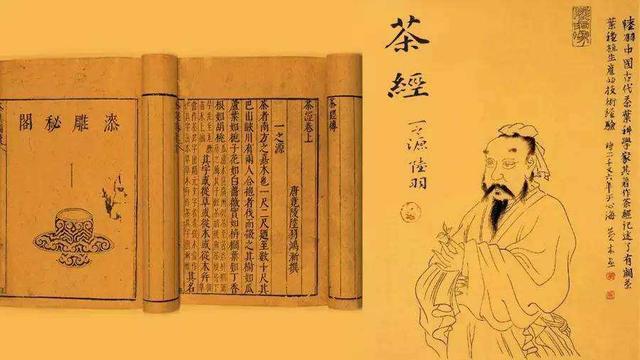 漆雕秘閣
茶經卷上
一之源
唐竟陵陸羽鴻漸撰
茶者南方之嘉木也一尺二尺迺至數十尺其
巴山峽川有兩人合抱者伐而掇之其樹如瓜
蘆葉如梔子花如白薔薇實如栟櫚葉如丁香
根如胡桃
其字或從草或從木或草木并
其名
茶經
一之源 陸羽
陸羽中國古代茶葉科學家其著作茶經記述了有關茶
葉種植生產的技術經驗 時二千又六年于心海